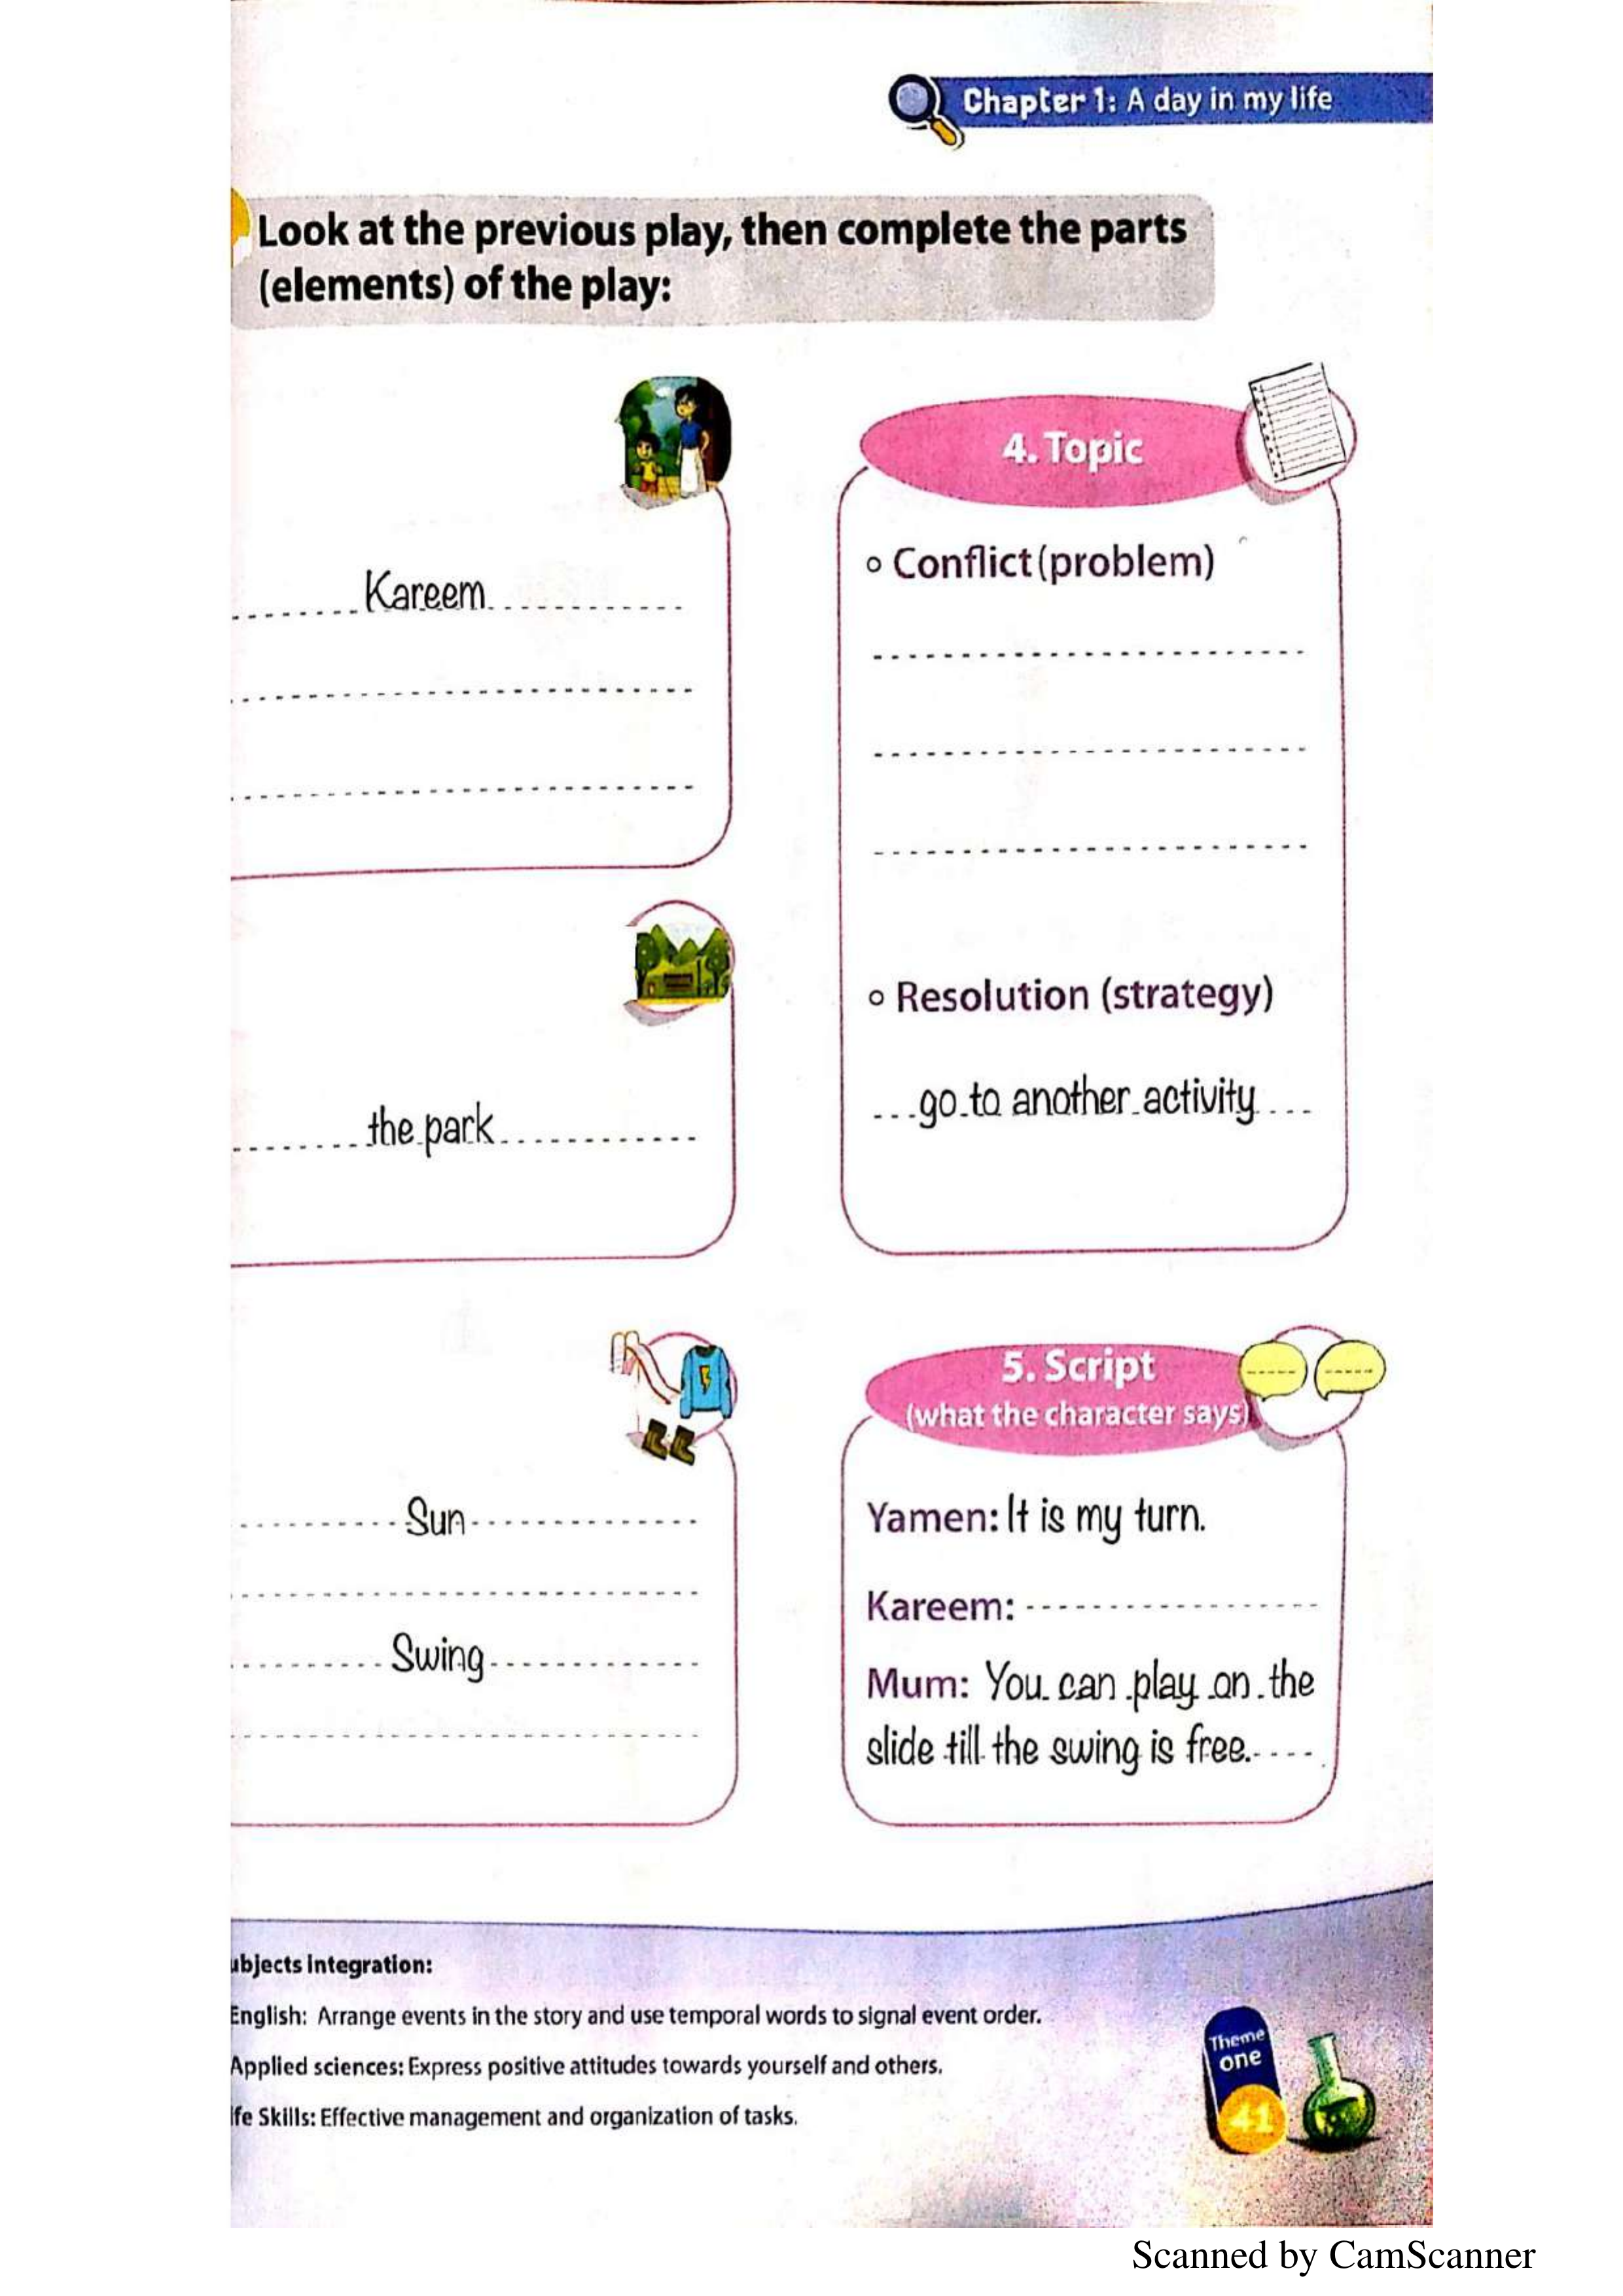 Chapter 1: A day in my life
Look at the previous play, then complete the parts
(elements) of the play:
Kareem
the park
Sun
Swing
4. Topic
Conflict (problem)
Resolution (strategy)
go to another activity
5. Script
(what the character says)
Yamen: It is my turn.
Kareem:
Mum: You can play on the
slide till the swing is free.
ubjects Integration:
English: Arrange events in the story and use temporal words to signal event order.
Applied sciences: Express positive attitudes towards yourself and others.
ife Skills: Effective management and organization of tasks.
Theme
one
41
Scanned by CamScanner